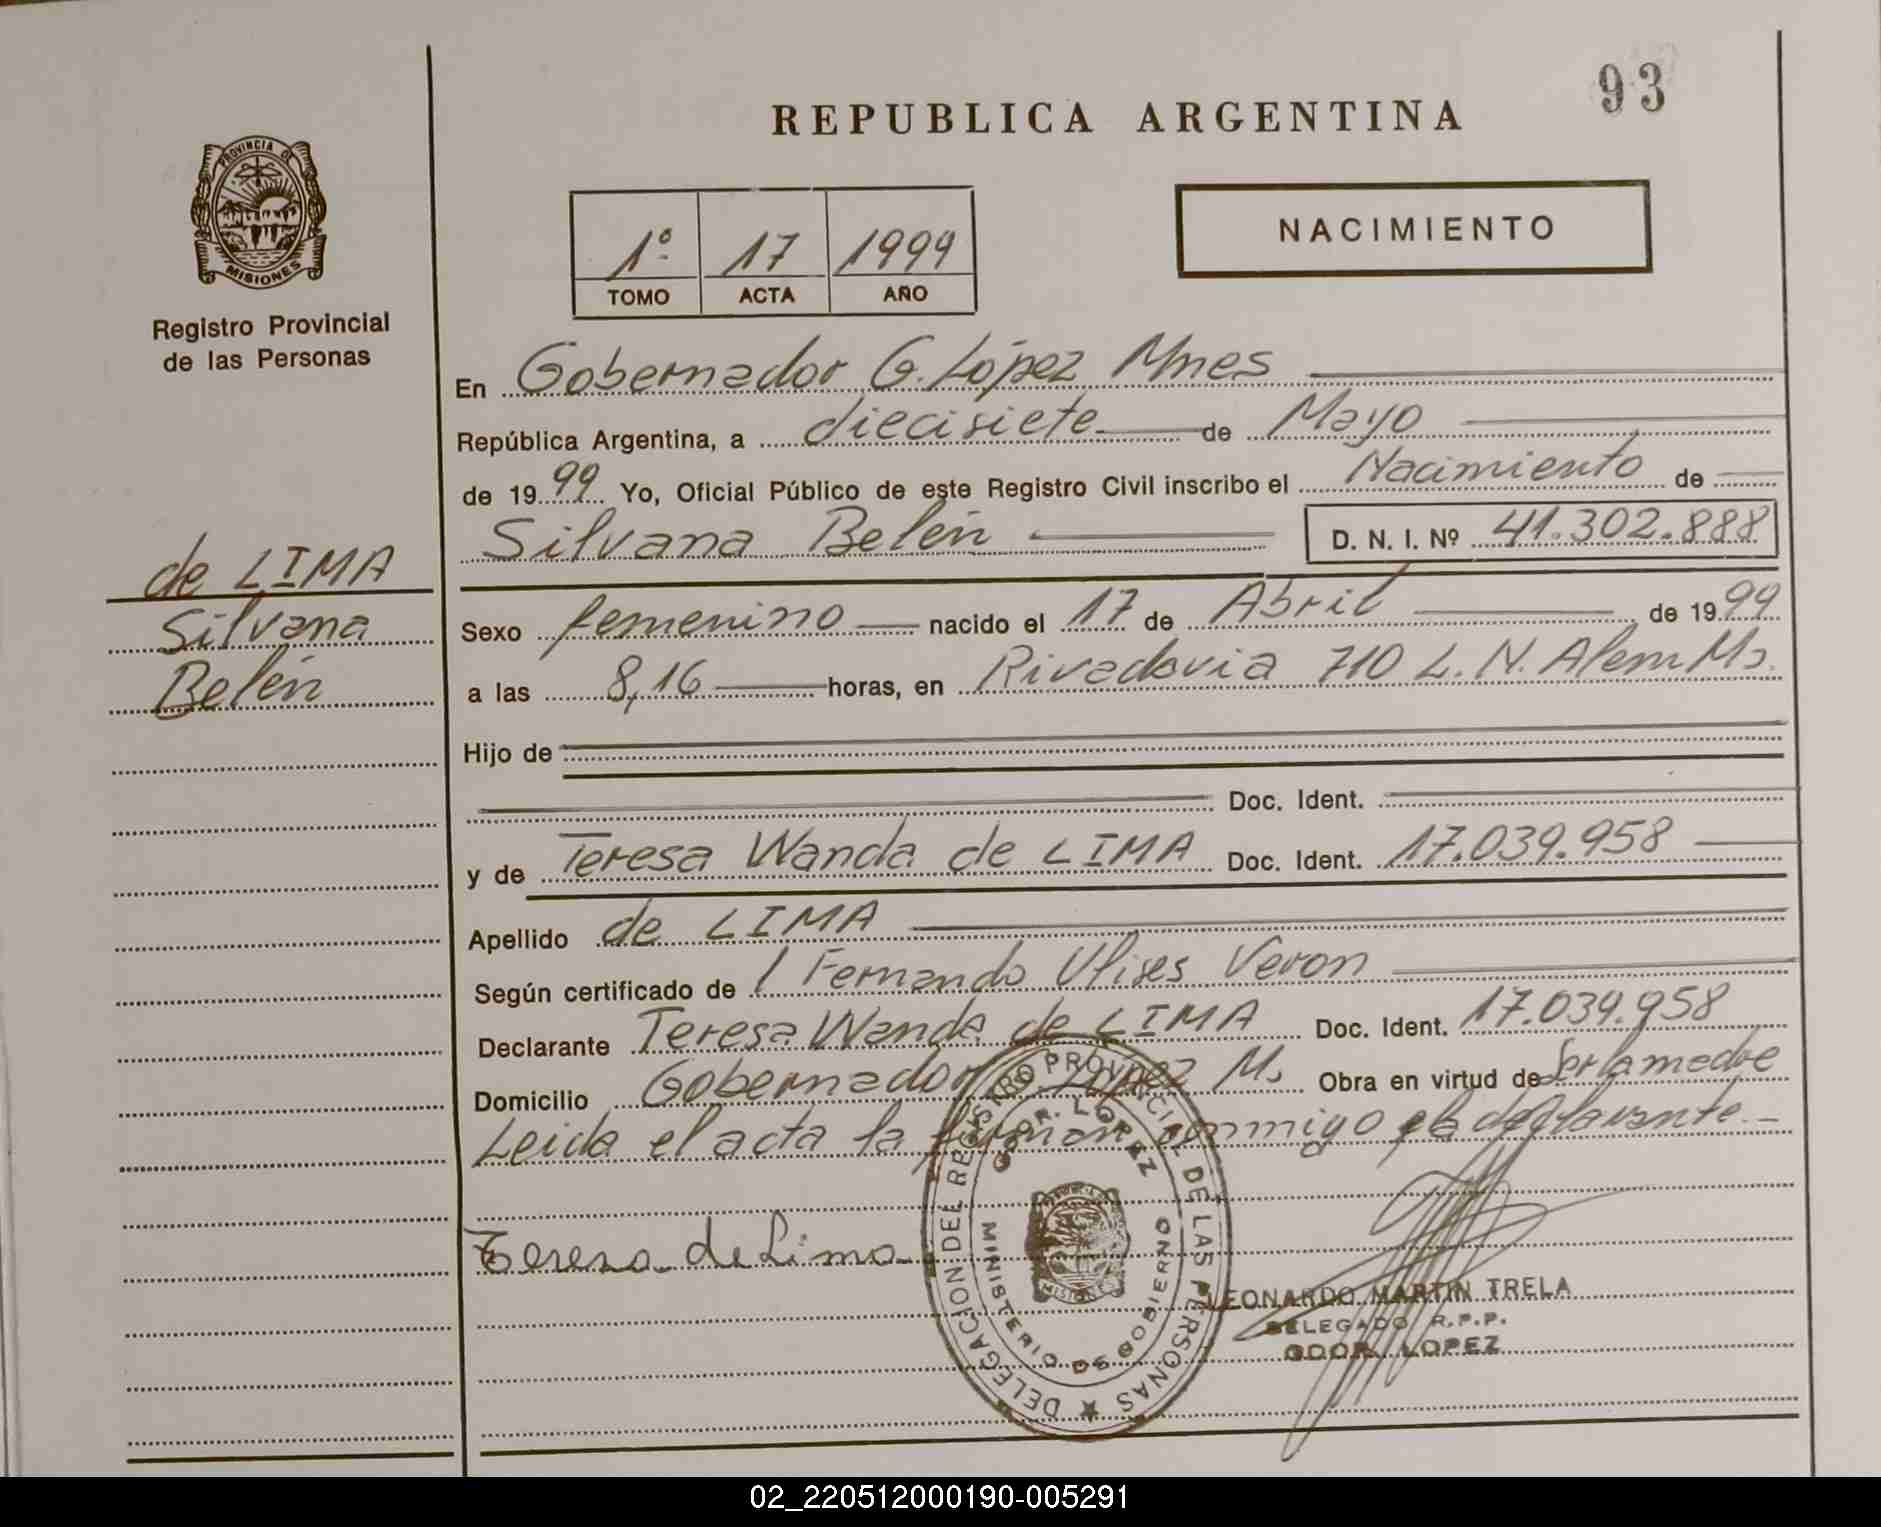 93
REPUBLICA ARGENTINA
PROVINCIA DE
MISIONES
Registro Provincial
de las Personas
1º 17 1999
TOMO ACTA AÑO
NACIMIENTO
En Gobernador G. López Mnes
República Argentina, a diecisiete de Mayo
de 1999 Yo, Oficial Público de este Registro Civil inscribo el Nacimiento de
Silvana Belén D. N. I. Nº 41.302.888
de LIMA
Silvana
Belén
Sexo femenino nacido el 17 de Abril de 1999
a las 8,16 horas, en Rivadavia 710 L. N. Alem Ms.
Hijo de
Doc. Ident.
y de Teresa Wanda de LIMA Doc. Ident. 17.039.958
Apellido de LIMA
Según certificado de Fernando Ulises Veron
Declarante Teresa Wanda de LIMA Doc. Ident. 17.039.958
Domicilio Gobernador López M. Obra en virtud de Ser la madre
Leida el acta la firman conmigo la declarante.
Teresa de Lima
DELEGACION DEL REGISTRO PROVINCIAL DE LAS PERSONAS
GDOR. LOPEZ
MINISTERIO DE GOBIERNO
MISIONES
LEONARDO MARTIN TRELA
DELEGADO R.P.P.
GDOR. LOPEZ
02_220512000190-005291